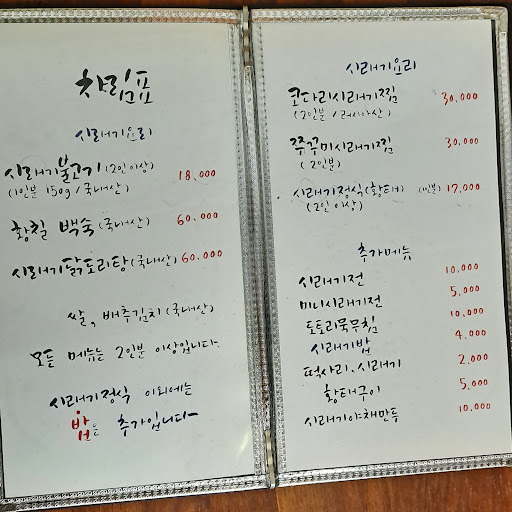 차림표
시래기요리
시래기불고기(2인이상) 18,000
(1인분 150g / 국내산)
황칠 백숙(국내산) 60,000
시래기닭도리탕(국내산) 60,000
쌀, 배추김치(국내산)
모든 메뉴는 2인분 이상입니다.
시래기정식 이외에는
밥은 추가입니다
시래기요리
코다리시래기찜 30,000
(2인분 / 러시아산)
쭈꾸미시래기찜 30,000
(2인분)
시래기정식(황태) (1인분) 17,000
(2인 이상)
추가메뉴
시래기전 10,000
미니시래기전 5,000
도토리묵무침 10,000
시래기밥 4,000
떡사리. 시래기 2,000
황태구이 5,000
시래기야채만두 10,000